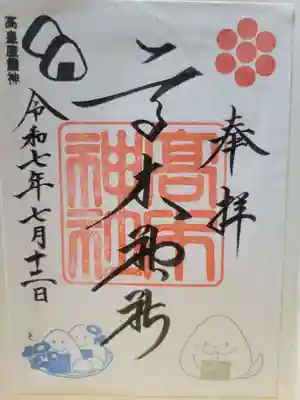 奉拝
高木神社
高木神社
高皇産霊神
令和七年七月十二日